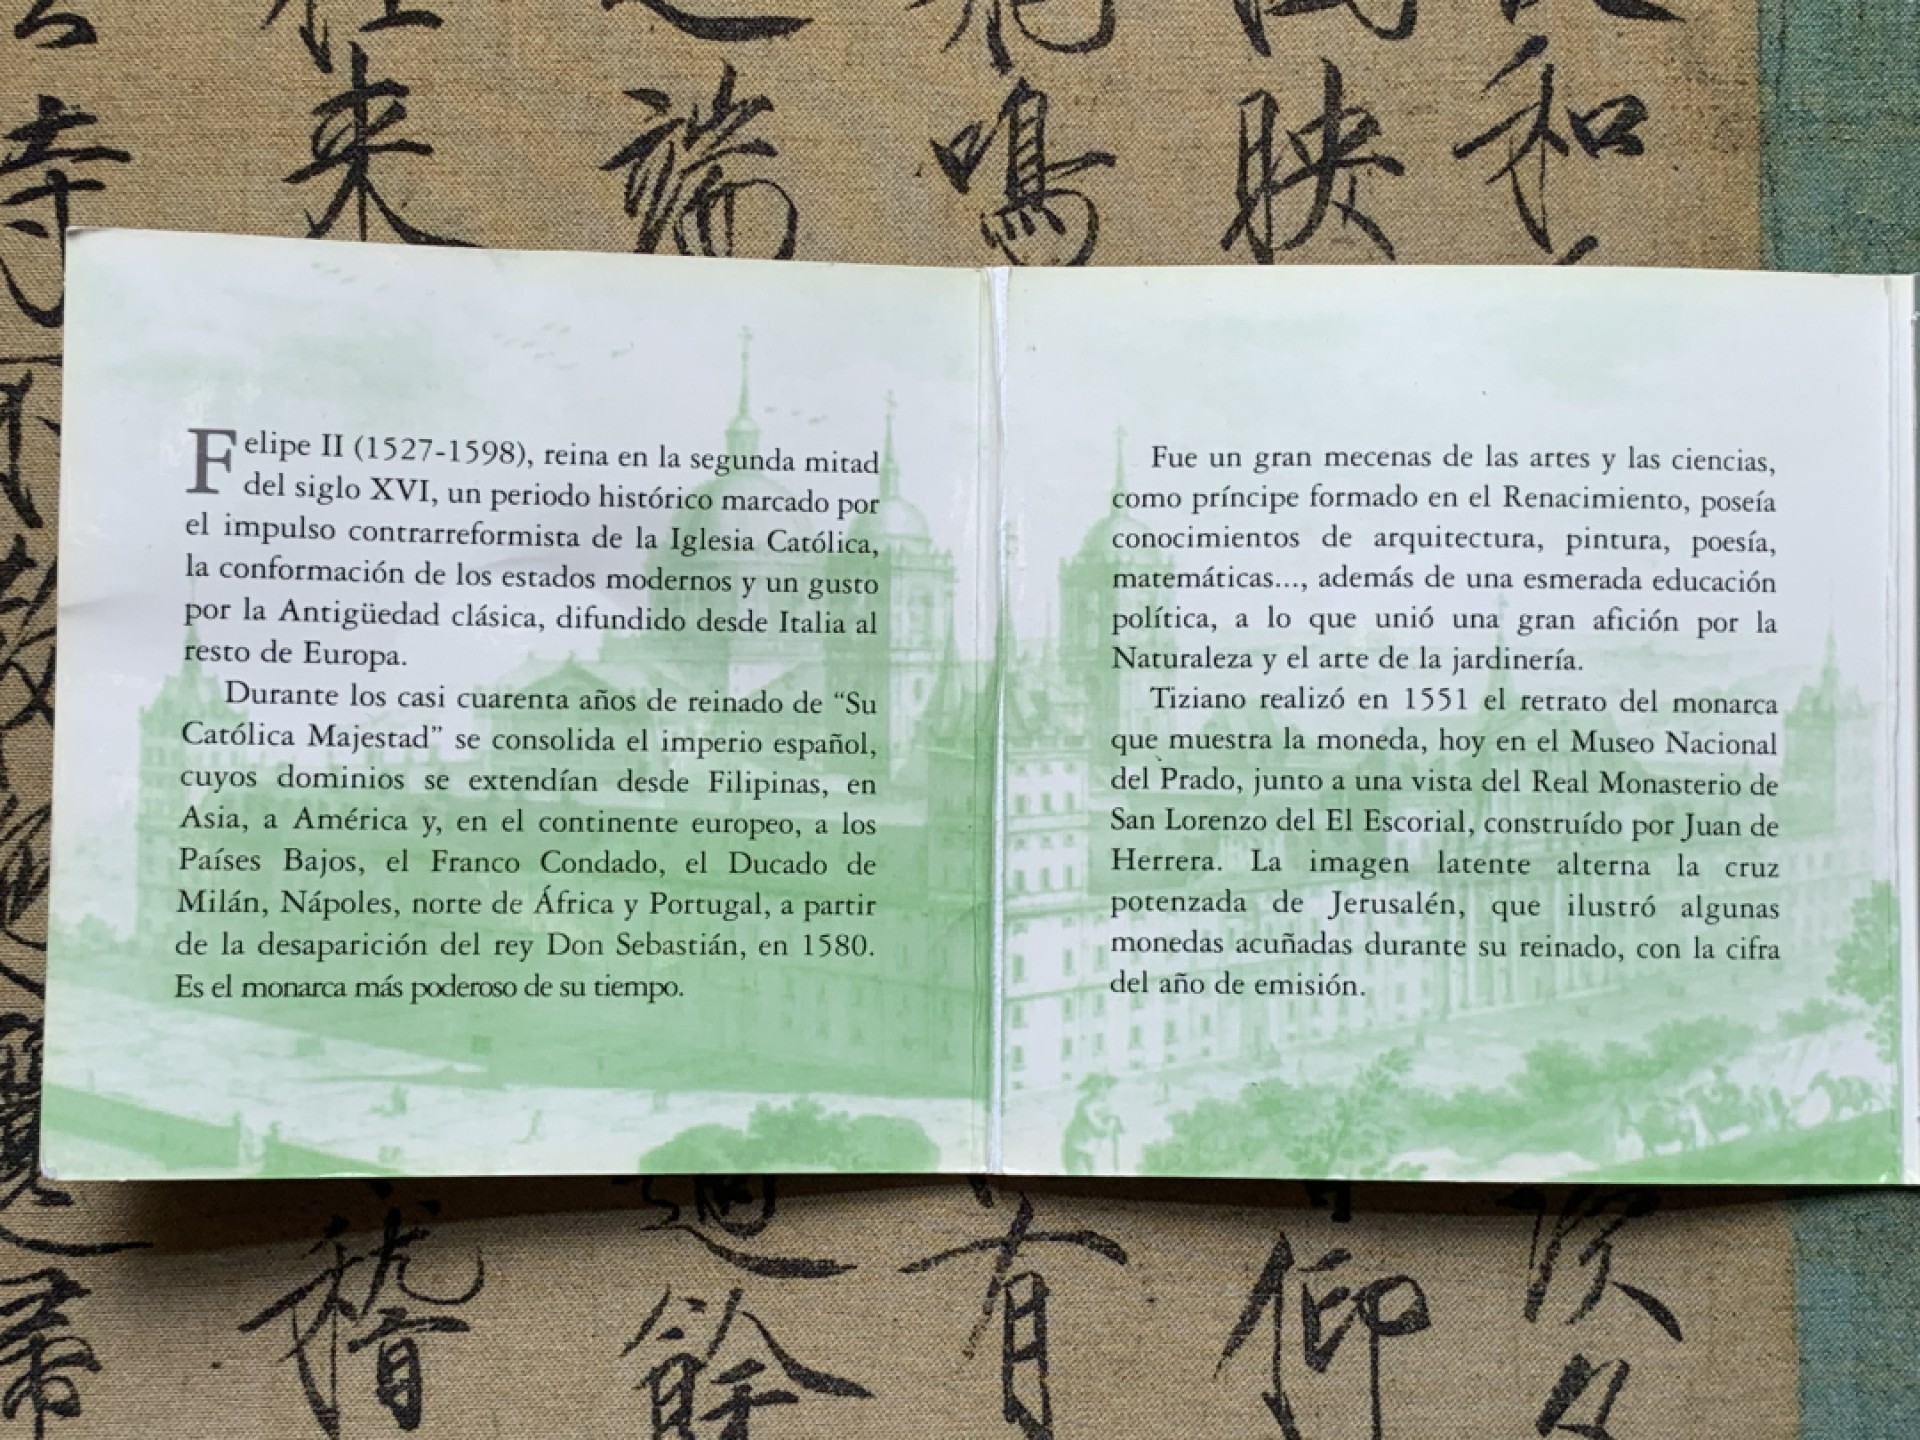 Felipe II (1527-1598), reina en la segunda mitad
del siglo XVI, un periodo histórico marcado por
el impulso contrarreformista de la Iglesia Católica,
la conformación de los estados modernos y un gusto
por la Antigüedad clásica, difundido desde Italia al
resto de Europa.
Durante los casi cuarenta años de reinado de “Su
Católica Majestad” se consolida el imperio español,
cuyos dominios se extendían desde Filipinas, en
Asia, a América y, en el continente europeo, a los
Países Bajos, el Franco Condado, el Ducado de
Milán, Nápoles, norte de África y Portugal, a partir
de la desaparición del rey Don Sebastián, en 1580.
Es el monarca más poderoso de su tiempo.
Fue un gran mecenas de las artes y las ciencias,
como príncipe formado en el Renacimiento, poseía
conocimientos de arquitectura, pintura, poesía,
matemáticas..., además de una esmerada educación
política, a lo que unió una gran afición por la
Naturaleza y el arte de la jardinería.
Tiziano realizó en 1551 el retrato del monarca
que muestra la moneda, hoy en el Museo Nacional
del Prado, junto a una vista del Real Monasterio de
San Lorenzo del El Escorial, construído por Juan de
Herrera. La imagen latente alterna la cruz
potenzada de Jerusalén, que ilustró algunas
monedas acuñadas durante su reinado, con la cifra
del año de emisión.
和
映
鳴
端
来
寺
仰
有
餘
稽
帝